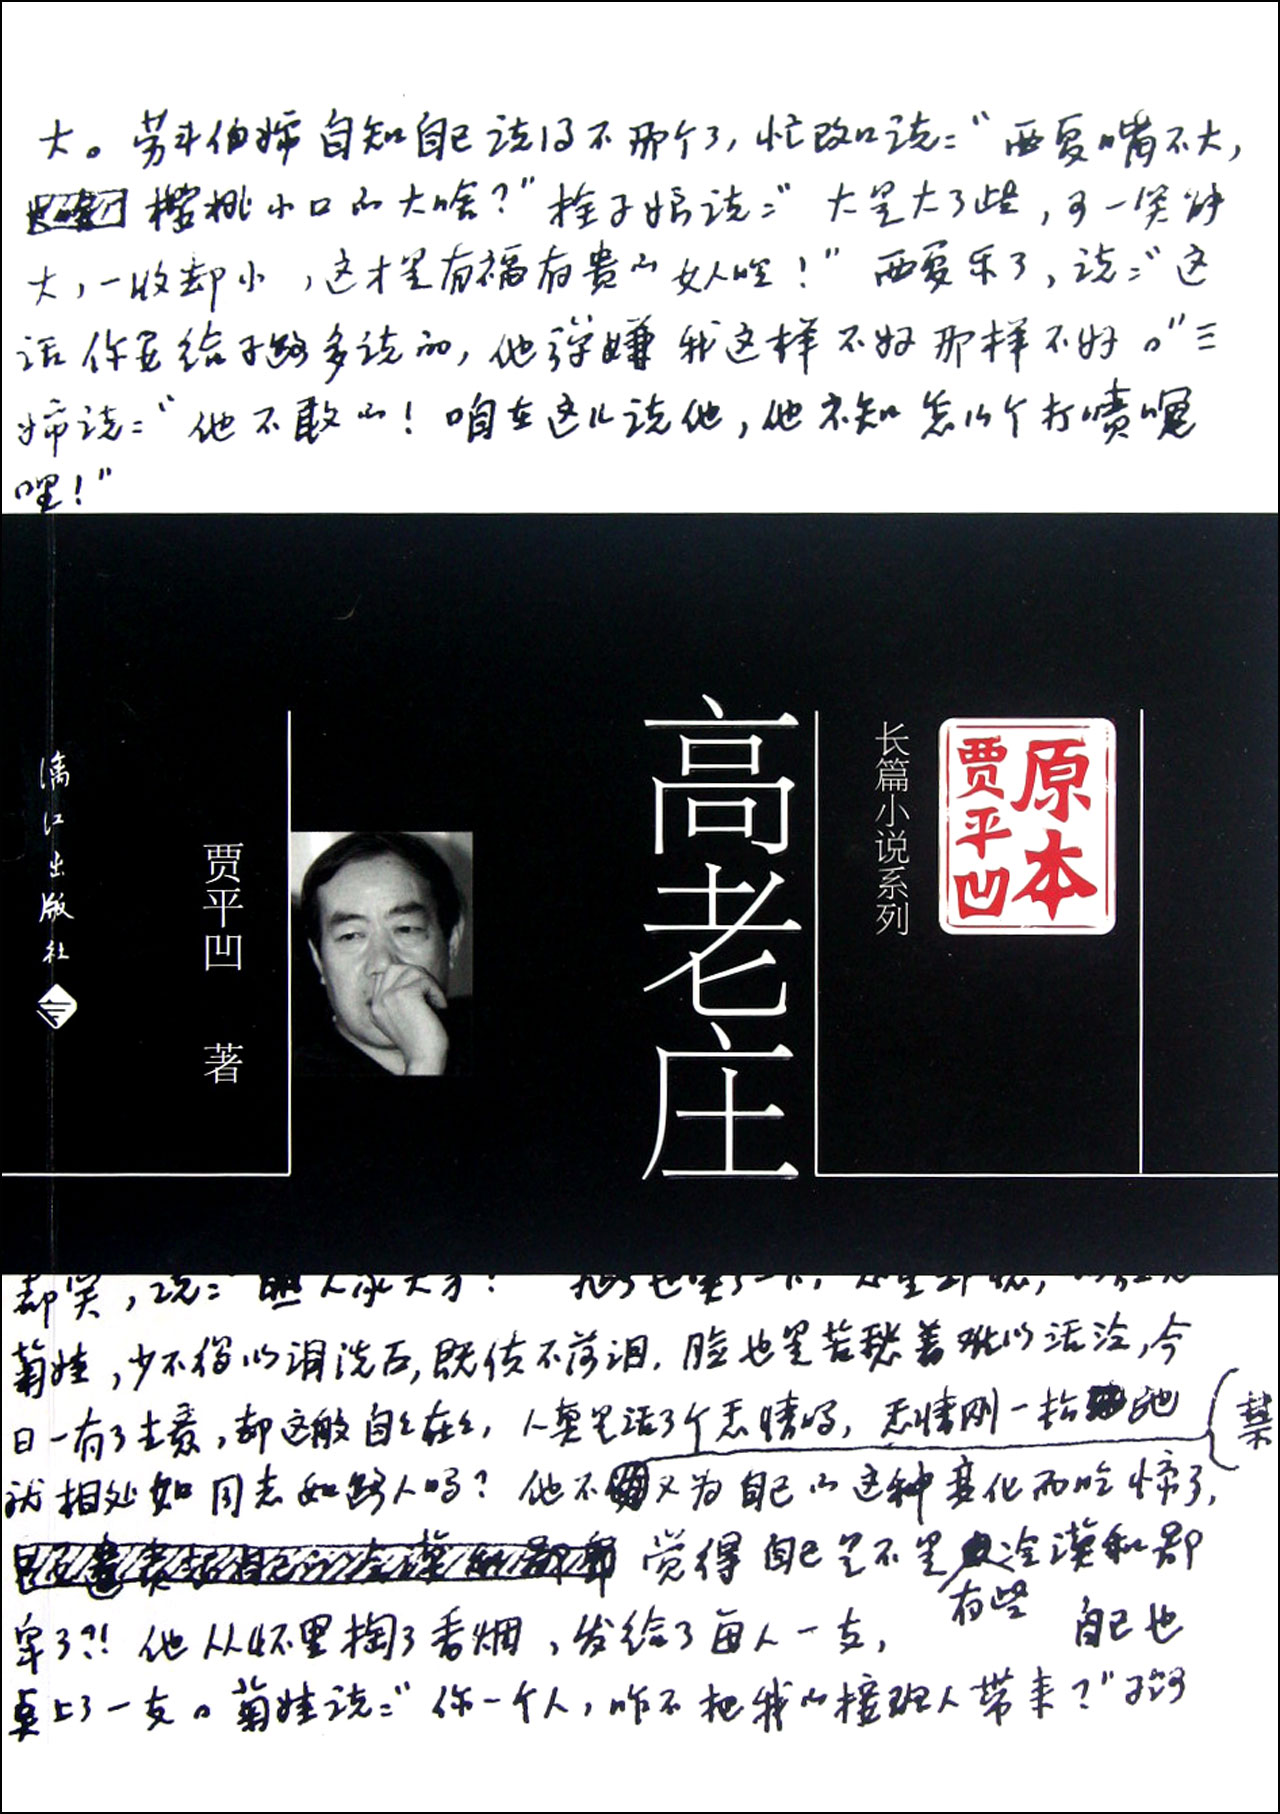 大。劳斗伯婶自知自己说得不那个了，忙改口说：“西夏嘴不大，
樱桃小口的大啥？”栓子娘说：“大是大了些，可一笑就
大，一收却小，这才是有福有贵的女人哩！”西夏乐了，说：“这
话你要给子路多说的，他弹嫌我这样不好那样不好。”三
婶说：“他不敢的！咱在这儿说他，他不知怎么个打喷嚏
哩！”
原本
贾平凹
长篇小说系列
高老庄
贾平凹 著
漓江出版社
都笑，说：
菊娃，少不得以泪洗面，既使不落泪，脸也是苦愁着难以活泛，今
日一有了主意，却这般自自在在，人莫是活了个悲情吗，悲情刚一抬她
就相处如同志如路人吗？他不又为自己的这种变化而吃惊了，
觉得自己是不是有些冷漠和鄙
军了？!他从怀里掏了香烟，发给了每人一支，自己也
点上了一支。菊娃说：“你一个人，咋不把我的接班人带来？”子路